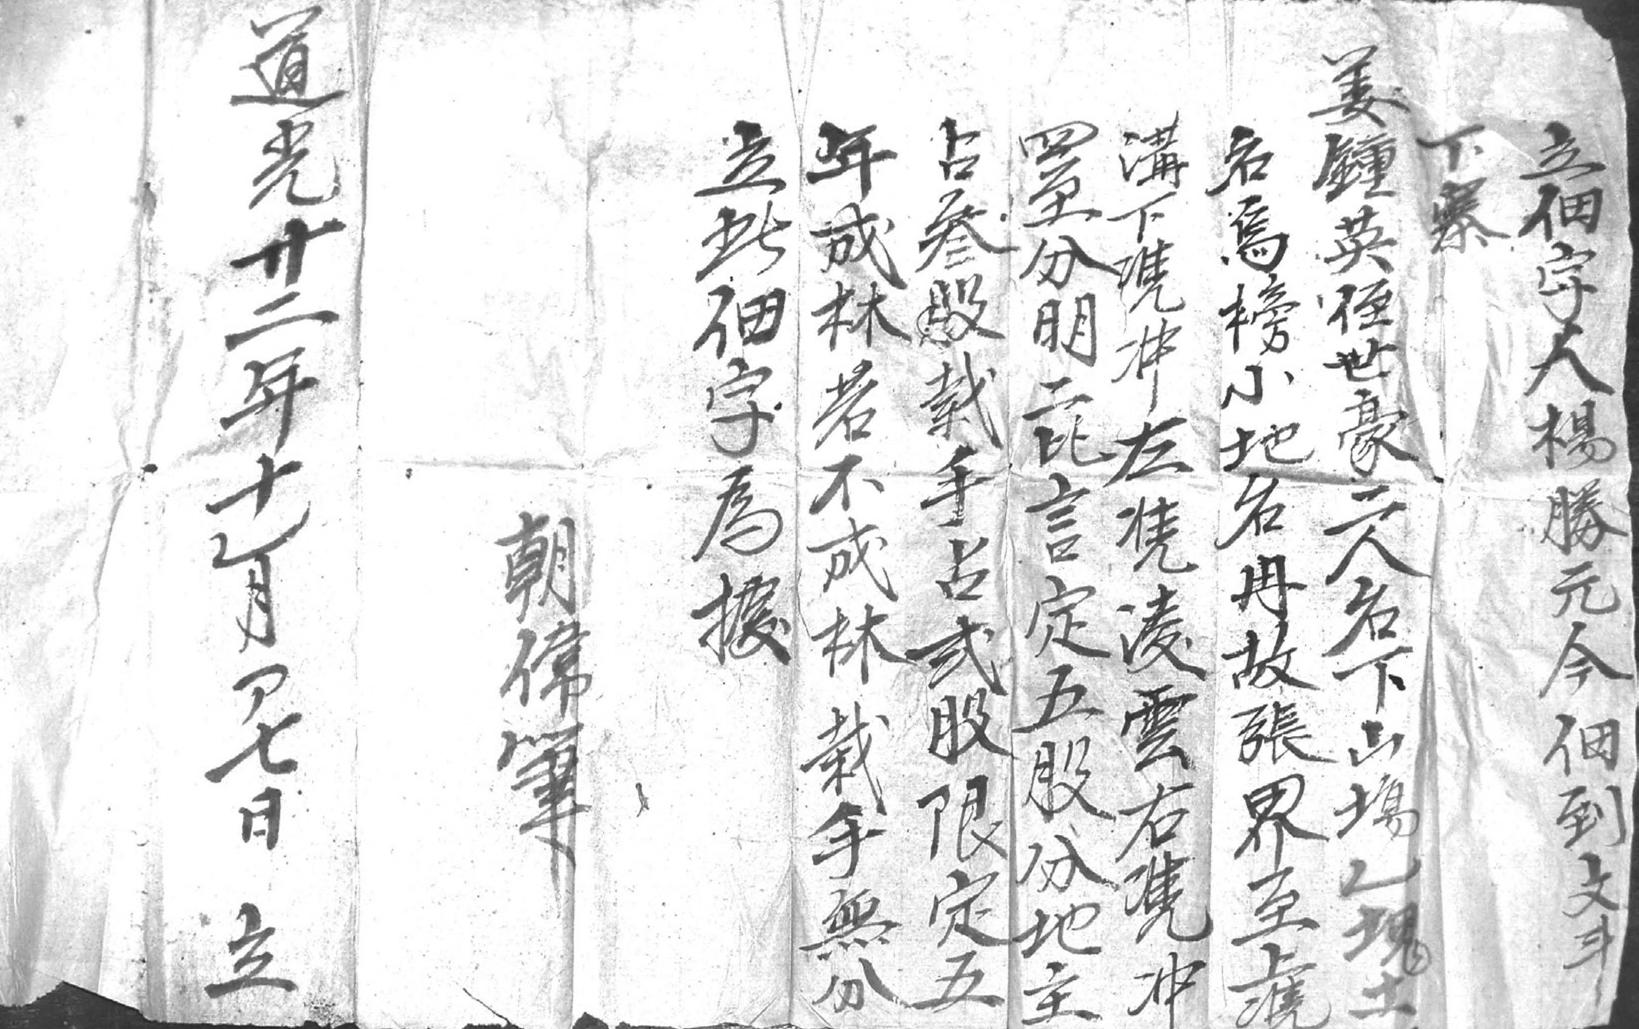 立佃字人楊勝元今佃到文斗
下寨
姜鐘英侄世豪二人名下山塲乙塊土
名烏榜小地名冉故張界至上凴
溝下凴冲左凴凌雲右凴冲
四至分明二比言定五股分地主
占叁股栽手占貳股限定五
年成林若不成林栽手無分
立此佃字為據
朝偉筆
道光廿二年十乙月初七日 立